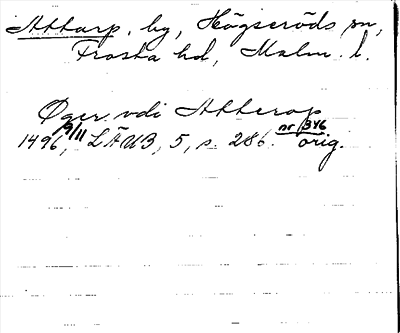 Attarp, by, Högseröds sn,
Frosta hd, Malm. l.
Øger vdi Atterop
1496 9/11, LÄUB, 5, s. 286. nr 346 orig.